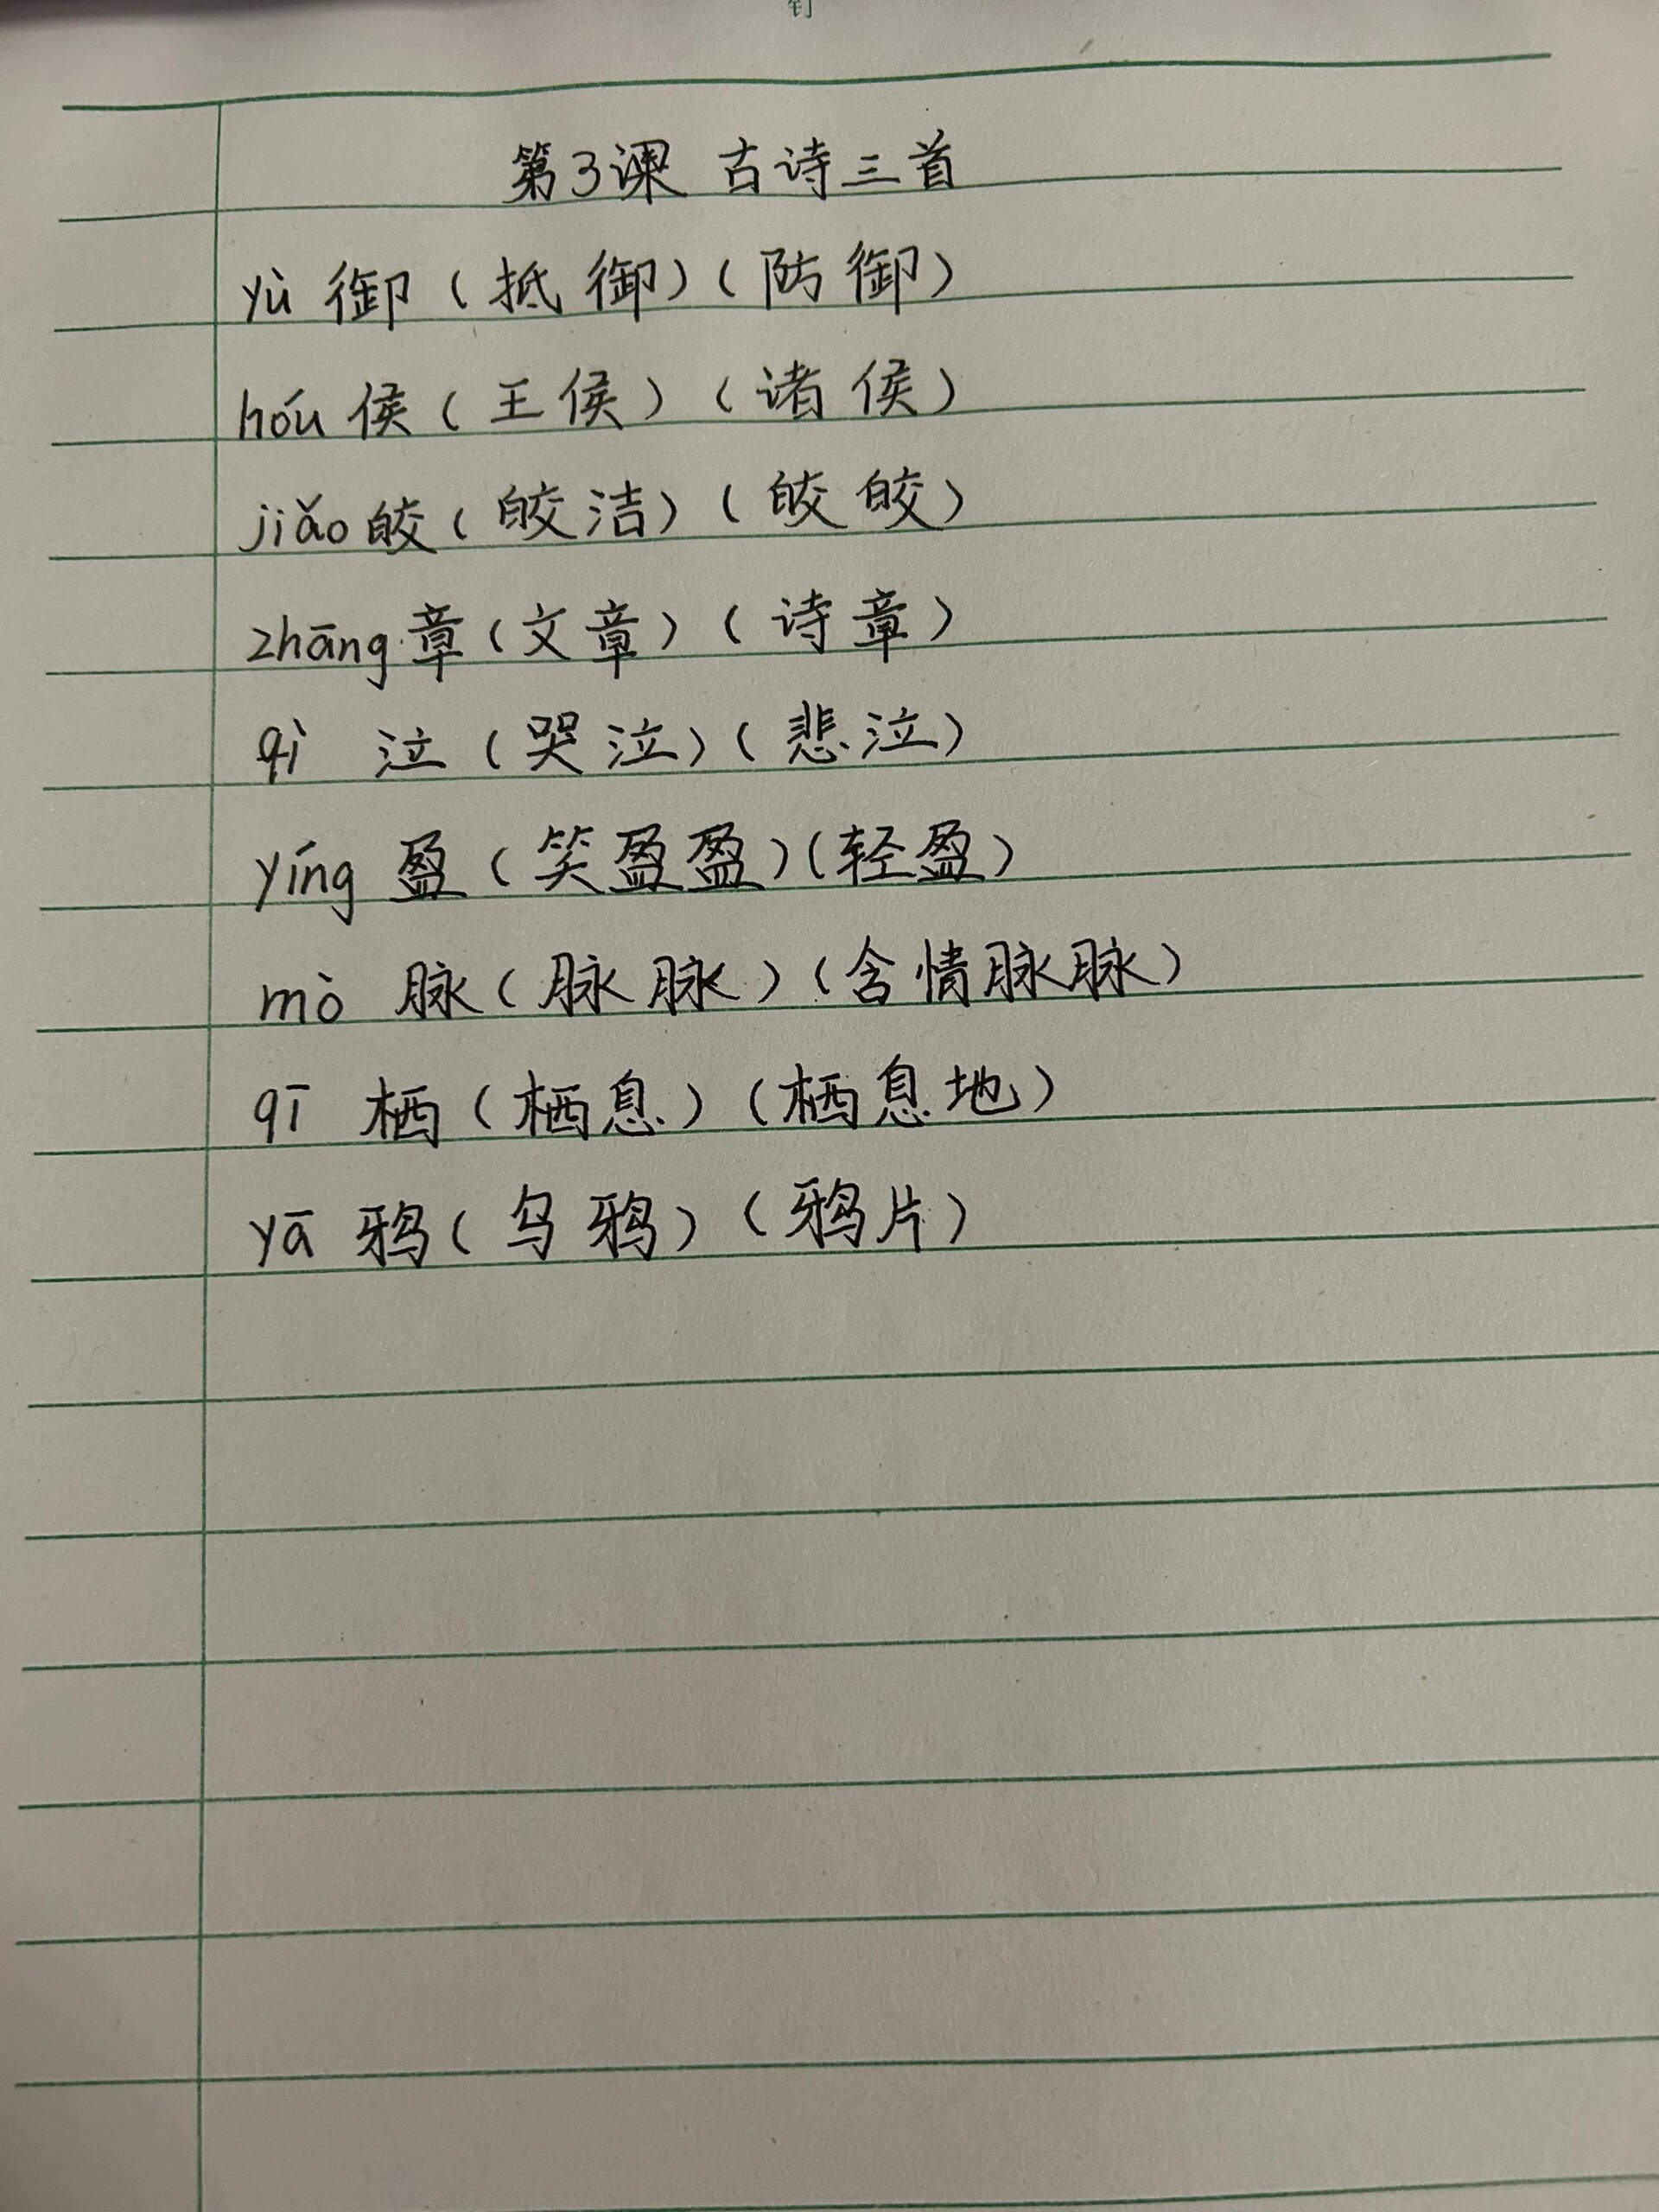 钉
第3课 古诗三首
yù 御(抵御)(防御)
hóu 侯(王侯)(诸侯)
jiǎo 皎(皎洁)(皎皎)
zhāng 章(文章)(诗章)
qì 泣(哭泣)(悲泣)
yíng 盈(笑盈盈)(轻盈)
mò 脉(脉脉)(含情脉脉)
qī 栖(栖息)(栖息地)
yā 鸦(乌鸦)(鸦片)